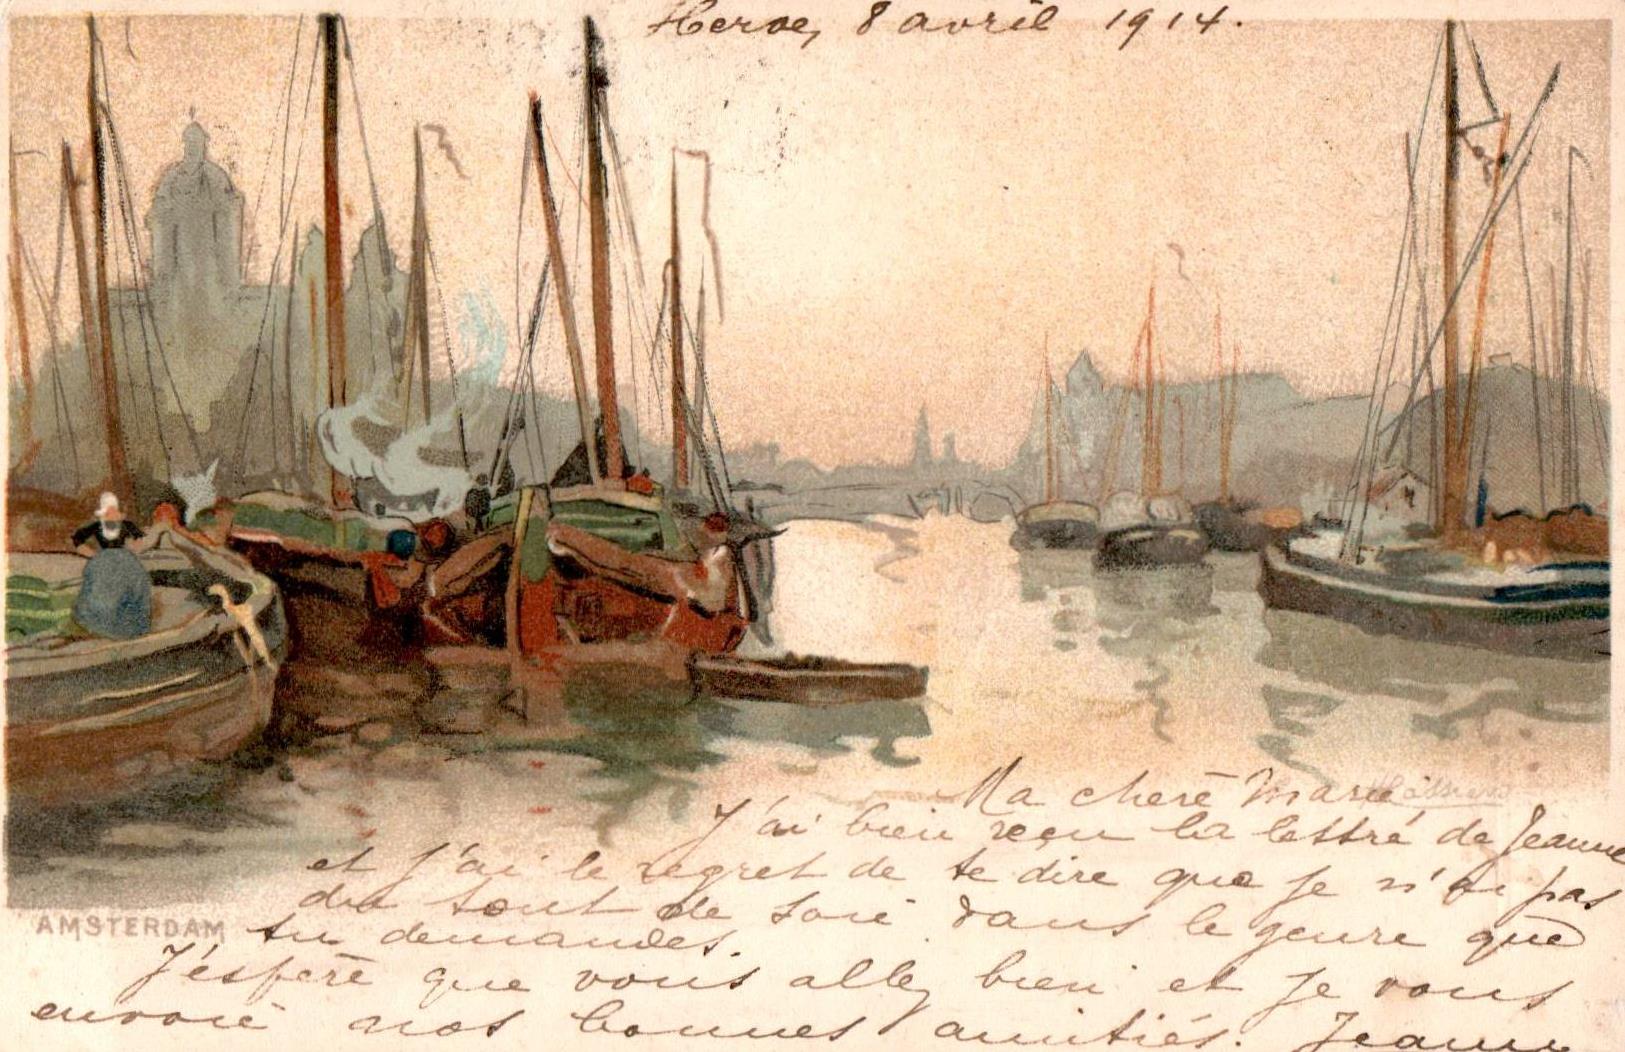 Herve, 8 avril 1914.
Ma chère Marie
J'ai bien reçu la lettre de Jeanne
et j'ai le regret de te dire que je n'ai pas
du tout de soie dans le genre que
AMSTERDAM
tu demandes.
J'espère que vous allez bien et je vous
envoie nos bonnes amitiés. Jeanne